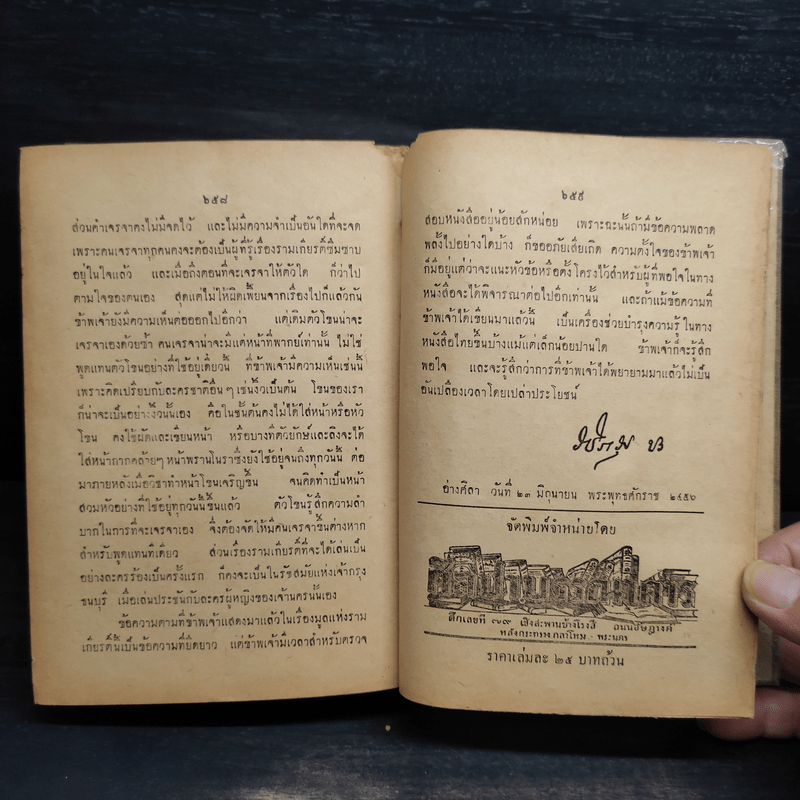 ๒๕๘
ส่วนคำเจรจาคงไม่มีจดไว้ และไม่มีความจำเป็นอันใดที่จะจด
เพราะคนเจรจาทุกคนคงจะต้องเป็นผู้ที่รู้เรื่องรามเกียรติ์ซึมซาบ
อยู่ในใจแล้ว และเมื่อถึงตอนที่จะเจรจาให้ตัวใด ก็ว่าไป
ตามใจของตนเอง สุดแต่ไม่ให้ผิดเพี้ยนจากเรื่องไปก็แล้วกัน
ข้าพเจ้ายังมีความเห็นต่อออกไปอีกว่า แต่เดิมตัวโขนน่าจะ
เจรจาเองด้วยซ้ำ คนเจรจาน่าจะมีแต่หน้าที่พากย์เท่านั้น ไม่ใช่
พูดแทนตัวโขนอย่างที่ใช้อยู่เดี๋ยวนี้ ที่ข้าพเจ้ามีความเห็นเช่นนี้
เพราะคิดเปรียบกับละครชาติอื่นๆ เช่นงิ้วเป็นต้น โขนของเรา
ก็น่าจะเป็นอย่างงิ้วนั้นเอง คือในชั้นต้นคงไม่ได้ใส่หน้าหรือหัว
โขน คงใช้ผัดและเขียนหน้า หรือบางทีตัวยักษ์และลิงจะได้
ใส่หน้ากากคล้ายๆ หน้าพรานโนราซึ่งยังใช้อยู่จนถึงทุกวันนี้ ต่อ
มาภายหลังเมื่อวิชาทำหน้าโขนเจริญขึ้น จนคิดทำเป็นหน้า
สวมหัวอย่างที่ใช้อยู่ทุกวันนี้ขึ้นแล้ว ตัวโขนรู้สึกความลำ
บากในการที่จะเจรจาเอง จึงต้องจัดให้มีคนเจรจาขึ้นต่างหาก
สำหรับพูดแทนทีเดียว ส่วนเรื่องรามเกียรติ์ที่จะได้เล่นเป็น
อย่างละครร้องเป็นครั้งแรก ก็คงจะเป็นในรัชสมัยแห่งเจ้ากรุง
ธนบุรี เมื่อเล่นประชันกับละครผู้หญิงของเจ้านครนั้นเอง
ข้อความตามที่ข้าพเจ้าแสดงมาแล้วในเรื่องมูลแห่งราม
เกียรติ์นี้เป็นข้อความที่ยืดยาว แต่ข้าพเจ้ามีเวลาสำหรับตรวจ
๒๕๙
สอบหนังสืออยู่น้อยสักหน่อย เพราะฉะนั้นถ้ามีข้อความพลาด
พลั้งไปอย่างใดบ้าง ก็ขออภัยเสียเถิด ความตั้งใจของข้าพเจ้า
ก็มีอยู่แต่ว่าจะแนะหัวข้อหรือตั้งโครงไว้สำหรับผู้ที่พอใจในทาง
หนังสือจะได้พิจารณาต่อไปอีกเท่านั้น และถ้าแม้ข้อความที่
ข้าพเจ้าได้เขียนมาแล้วนี้ เป็นเครื่องช่วยบำรุงความรู้ในทาง
หนังสือไทยขึ้นบ้างแม้แต่เล็กน้อยปานใด ข้าพเจ้าก็จะรู้สึก
พอใจ และจะรู้สึกว่าการที่ข้าพเจ้าได้พยายามมาแล้วไม่เป็น
อันเปลืองเวลาโดยเปล่าประโยชน์
อ่างศิลา วันที่ ๒๓ มิถุนายน พระพุทธศักราช ๒๔๕๖
จัดพิมพ์จำหน่ายโดย
ศิลปาบรรณาคาร
ตึกเลขที่ ๗๙ เชิงสะพานช้างโรงสี ถนนอัษฎางค์
หลังกระทรวงกลาโหม - พระนคร
ราคาเล่มละ ๒๕ บาทถ้วน